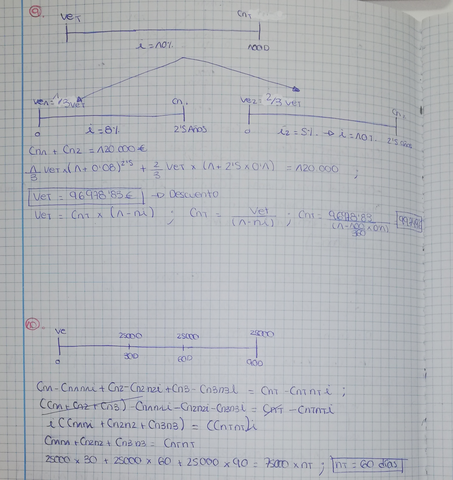 9.
VeT CnT
i = 10%
Ve1 = 1/3 VeT Cn1 Ve2 = 2/3 VeT Cn2
0 i = 8% 2'5 Años 0 i2 = 5% → i = 10% 2'5 Años
Cn1 + Cn2 = 120.000 €
1/3 VeT x (1 + 0'08)^2'5 + 2/3 VeT x (1 + 2'5 x 0'1) = 120.000 ;
VeT = 96978'83 € → Descuento
VeT = CnT x (1 - ni) ; CnT = VeT/(1-ni) ; CnT =
10.
Ve 25000 25000 25000
0 300 600 900
Cn1 - Cn1n1i + Cn2 - Cn2n2i + Cn3 - Cn3n3i = CnT - CnTnTi ;
(Cn1 + Cn2 + Cn3) - Cn1n1i - Cn2n2i - Cn3n3i = CnT - CnTnTi
i (Cn1n1 + Cn2n2 + Cn3n3) = (CnTnT)i
Cn1n1 + Cn2n2 + Cn3n3 = CnTnT
25000 x 30 + 25000 x 60 + 25000 x 90 = 75000 x nT ; nT = 60 días